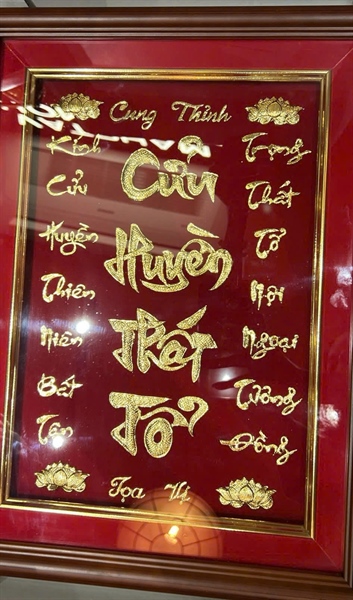 Cung Thỉnh
Kính
Cửu
Huyền
Thiên
Niên
Bất
Tận
Cửu
Huyền
Thất
Tổ
Trọng
Thất
Tổ
Nội
Ngoại
Tường
Đồng
Tọa Vị